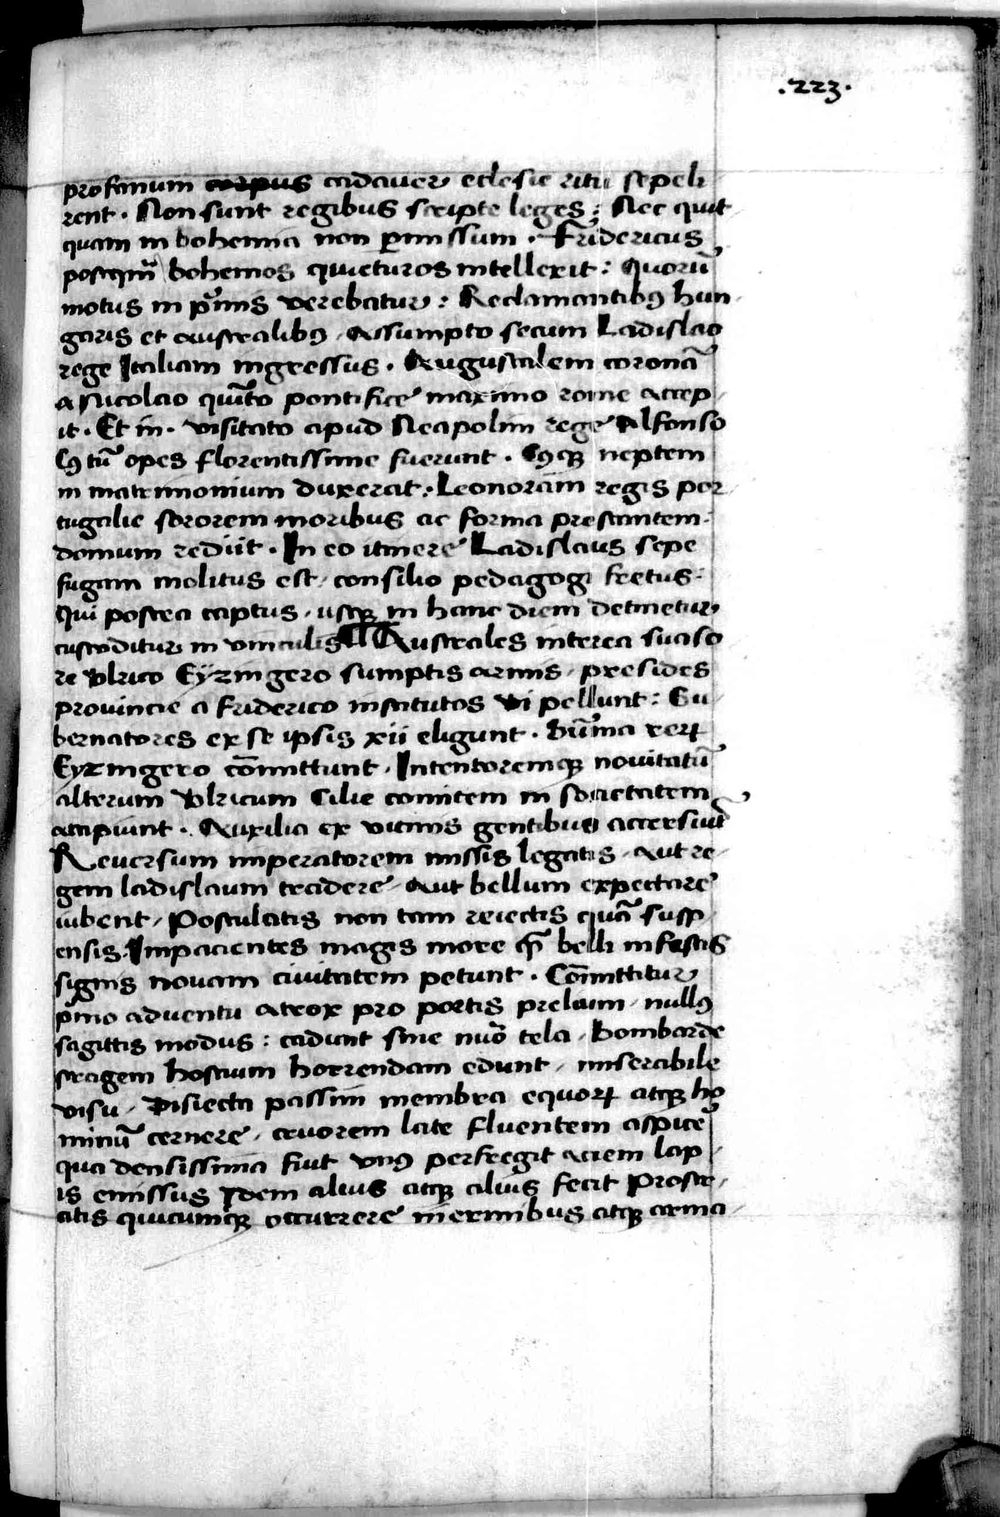 .223.
profanum corpus cadauer eclesie ritu sepeli
rent. Non sunt regibus scripte leges: Nec quit
quam in bohemia non p̲missum. Fridericus
postqm̃ bohemos quieturos intellexit: Quorũ
motus in p̃mis verebatur: Reclamantibꝰ hun
garis et australibꝰ, Assumpto secum Ladislao
rege Italiam ingressus. Augustalem coronã
a Nicolao quĩto pontifice maximo rome accep
it. Et in. visitato apud Neapolim rege Alfonso
Cꝰ tũ opes florentissime fuerunt. Cꝰqꝫ neptem
in matrimonium duxerat. Leonoram regis por
tugalie sororem moribus ac forma prestantem.
domum rediit. In eo itinere Ladislaus sepe
fugam molitus est, consilio pedagogi fretus.
Qui postea captus, usqꝫ in hanc diem detinetur
custoditur in vinculis ¶ Australes interea suaso
re Vlrico Eyzingero sumptis armis, presides
prouincie a Friderico institutos vi pellunt: Gu
bernatores ex se ipsis xii eligunt. Sũma rerꝝ
Eyzingero cõmittunt. Intentoremqꝫ nouitatũ
alterum Vlricum Cilie comitem in societatem
accipiunt. Auxilia ex vicinis gentibus accersiũt
Reuersum imperatorem missis legatis, aut re
gem ladislaum tradere, aut bellum expectare
iubent, Postulatis non tam reiectis quã susp
ensis. Impacientes magis more q̃ belli infestis
signis nouam ciuitatem petunt. Cõmittitur
p̃mo aduentu atrox pro portis prelium, nullꝰ
sagittis modus: cadunt sine nũo tela, Bombarde
stragem hostium horrendam edunt, miserabile
visu, Disiecta passim membra equorꝝ atqꝫ ho
minũ cernere, cruorem late fluentem aspicẽ
qua densissima fuit vnꝰ perfregit aciem lap
is emissus Idem alius atqꝫ alius fecit Prostr
atis quicumqꝫ occurrere inermibus atqꝫ arma